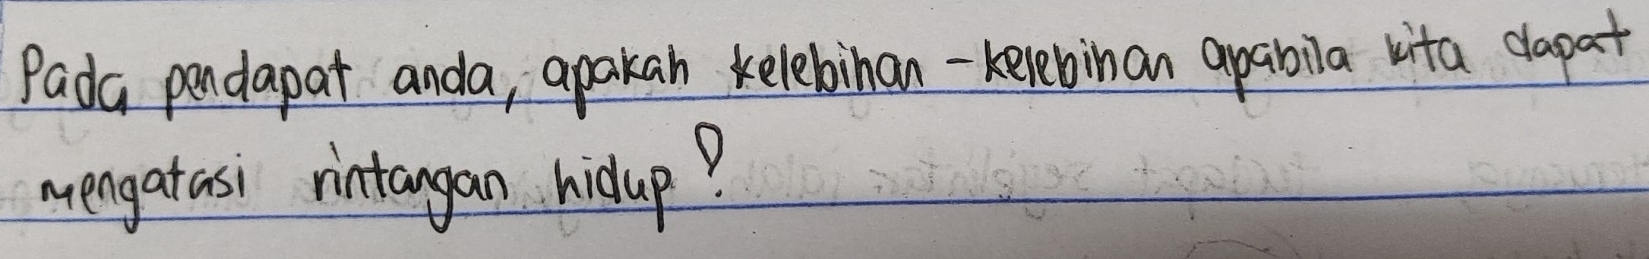 Pada pendapat anda, apakah kelebihan-kelebihan apabila kita dapat
mengatasi rintangan hidup?